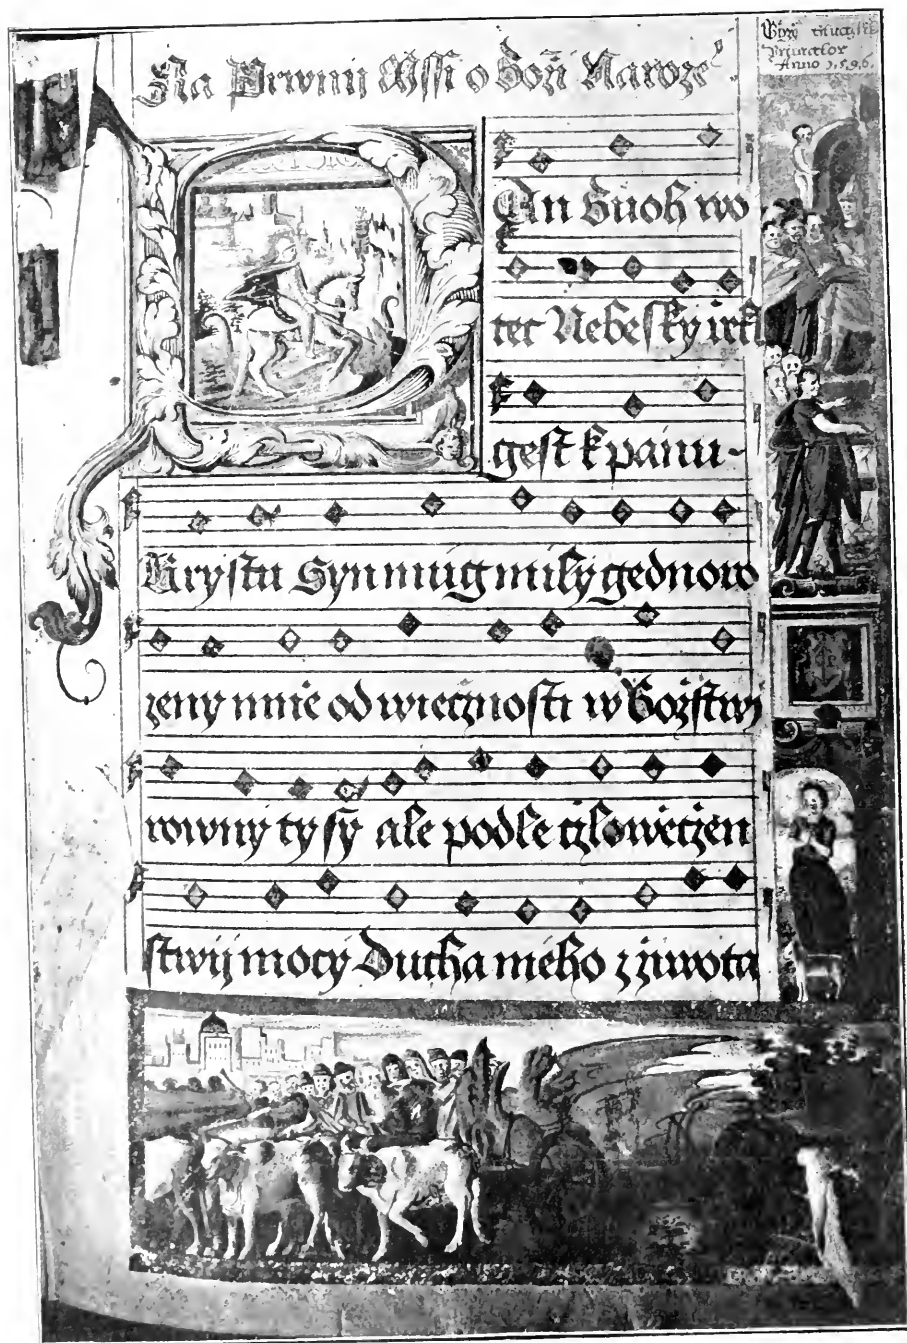 Na Prwnij Mssi o Božij Naroze
Anno 1,5,9,6,
PAn Buoh wo
tec Nebesky rzekl
gest k panu
Krystu Syn muig mily gednoro
zeny mnie od wiecznosti w Božstwij
rowny ty sy ale podle czlowieczen
stwij mocy Ducha meho z ziwota